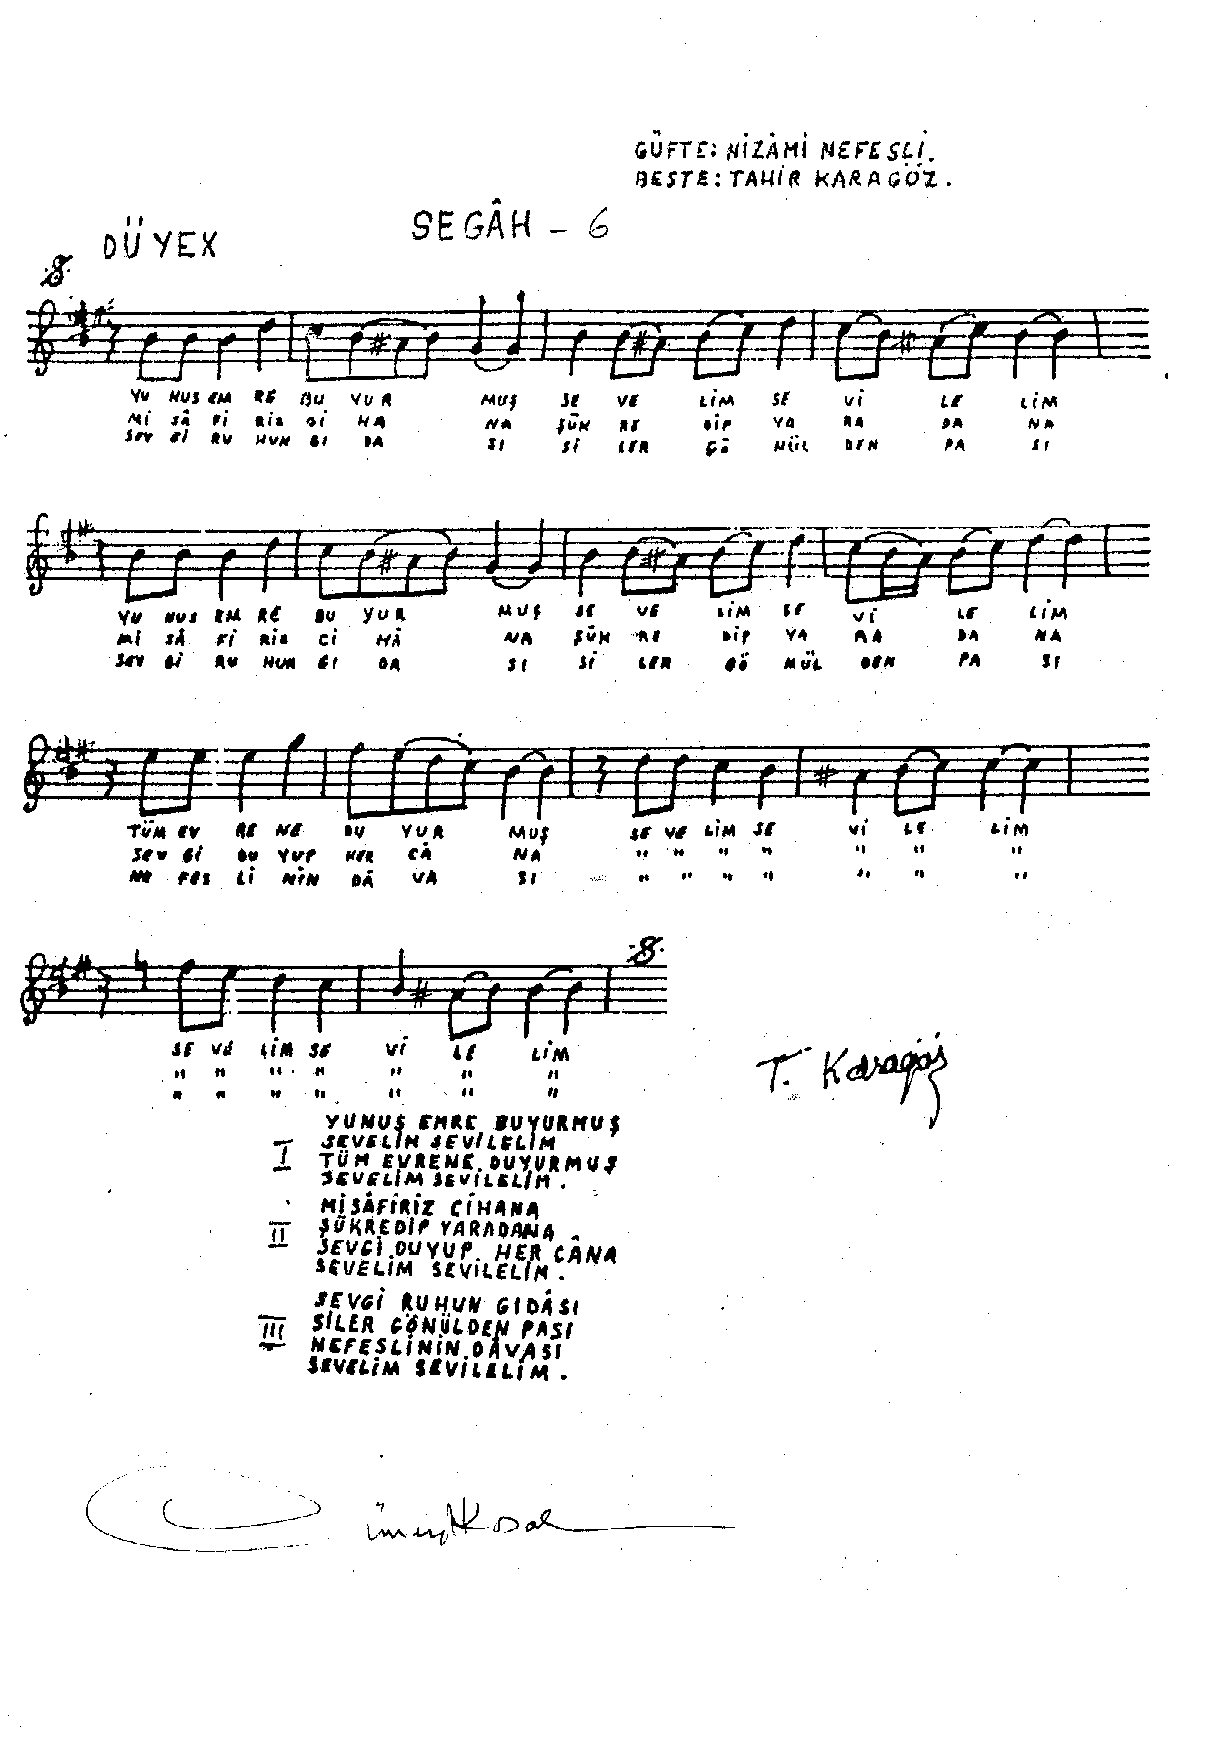 GÜFTE: NİZÂMİ NEFESLİ.
BESTE: TAHİR KARAGÖZ.
SEGÂH - 6
DÜYEK
YU NUS EM RE BU YUR MUŞ SE VE LİM SE Vİ LE LİM
Mİ SÂ Fİ RİZ Cİ HA NA ŞÜK RE DİP YA RA DA NA
SEV Gİ RU HUN GI DA SI Sİ LER GÖ NÜL DEN PA SI
YU NUS EM RE BU YUR MUŞ SE VE LİM SE Vİ LE LİM
Mİ SÂ Fİ RİZ Cİ HÂ NA ŞÜK RE DİP YA RA DA NA
SEV Gİ RU HUN GI DA SI Sİ LER GÖ NÜL DEN PA SI
TÜM EV RE NE DU YUR MUŞ SE VE LİM SE Vİ LE LİM
SEV Gİ DU YUP HER CÂ NA " " " " " " "
NE FES Lİ NİN DÂ VA SI " " " " " " "
SE VE LİM SE Vİ LE LİM
" " " " " " "
" " " " " " "
T. Karagöz
YUNUS EMRE BUYURMUŞ
SEVELİM SEVİLELİM
I TÜM EVRENE DUYURMUŞ
SEVELİM SEVİLELİM.
MİSÂFİRİZ CİHANA
II ŞÜKREDİP YARADANA
SEVGİ DUYUP HER CÂNA
SEVELİM SEVİLELİM.
SEVGİ RUHUN GIDÂSI
III SİLER GÖNÜLDEN PASI
NEFESLİNİN DÂVASI
SEVELİM SEVİLELİM.